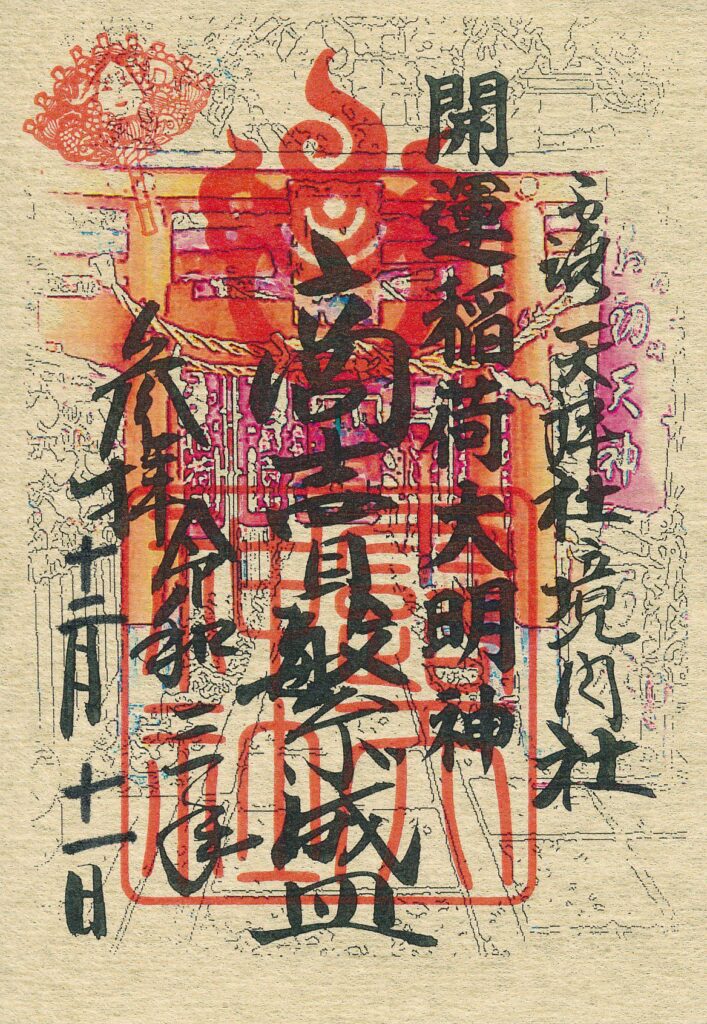 お初天神
露天神社境内社
開運稲荷大明神
商賣繁盛
令和二年
参拝
十二月十一日